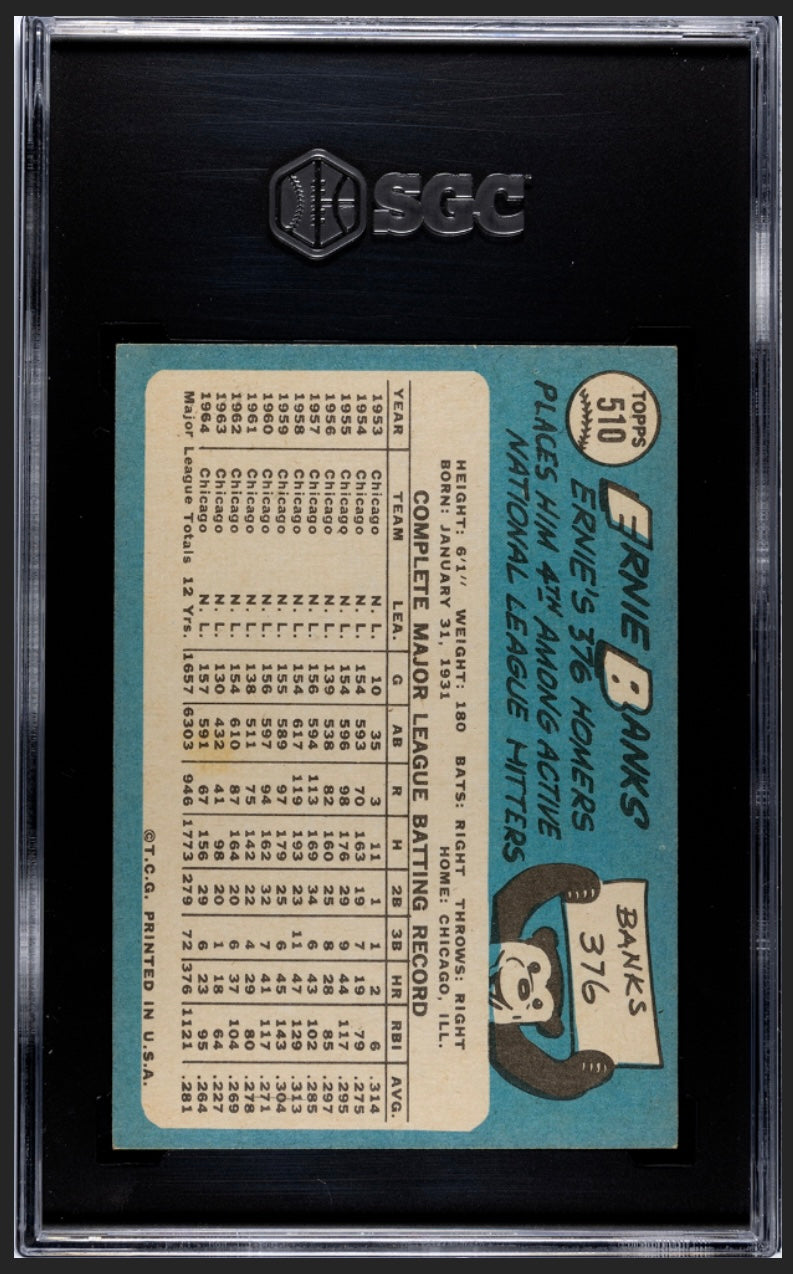 SGC
TOPPS
510
ERNIE BANKS
ERNIE'S 376 HOMERS
PLACES HIM 4TH AMONG ACTIVE
NATIONAL LEAGUE HITTERS
BANKS
376
HEIGHT: 6'1" WEIGHT: 180 BATS: RIGHT THROWS: RIGHT
BORN: JANUARY 31, 1931 HOME: CHICAGO, ILL.
COMPLETE MAJOR LEAGUE BATTING RECORD
YEAR TEAM LEA. G AB R H 2B 3B HR RBI AVG.
1953 Chicago N. L. 10 35 3 11 1 1 2 6 .314
1954 Chicago N. L. 154 593 70 163 19 7 19 79 .275
1955 Chicago N. L. 154 596 98 176 29 9 44 117 .295
1956 Chicago N. L. 139 538 82 160 25 8 28 85 .297
1957 Chicago N. L. 156 594 113 169 34 6 43 102 .285
1958 Chicago N. L. 154 617 119 193 23 11 47 129 .313
1959 Chicago N. L. 155 589 97 179 25 6 45 143 .304
1960 Chicago N. L. 156 597 94 162 32 7 41 117 .271
1961 Chicago N. L. 138 511 75 142 22 4 29 80 .278
1962 Chicago N. L. 154 610 87 164 20 6 37 104 .269
1963 Chicago N. L. 130 432 41 98 20 1 18 64 .227
1964 Chicago N. L. 157 591 67 156 29 6 23 95 .264
Major League Totals 12 Yrs. 1657 6303 946 1773 279 72 376 1121 .281
©T.C.G. PRINTED IN U.S.A.